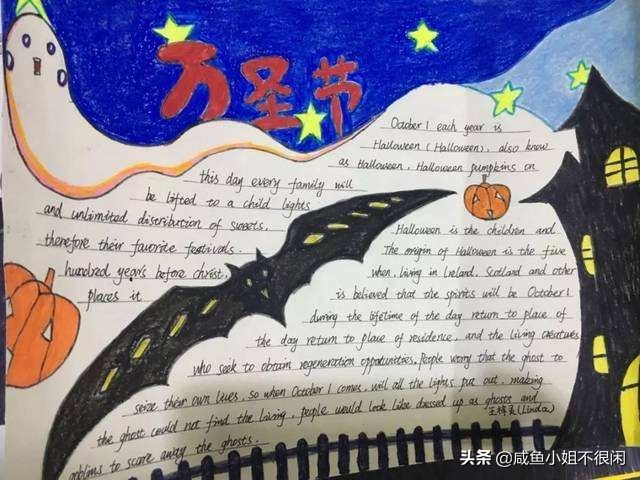 万圣节
October 1 each year is
Halloween (Halloween), also know
as Halloween, Halloween pumpkins on
this day every family will
be lifted to a child lights
and unlimited distribution of sweets,
therefore their favorite festivals.
hundred years before christ,
places it
Halloween is the children and
The origin of Halloween is the five
when, living in Ireland, Scotland and other
is believed that the spirits will be October 1
during the lifetime of the day return to place of
the day return to place of residence, and the living creatures
who seek to obtain regeneration opportunities. People worry that the ghost to
seize their own lives, so when October 1 comes, will all the lights put out, making
the ghost could not find the living, people would look like dressed up as ghosts and
goblins to scare away the ghosts.
(Linda)
头条 @咸鱼小姐不很闲